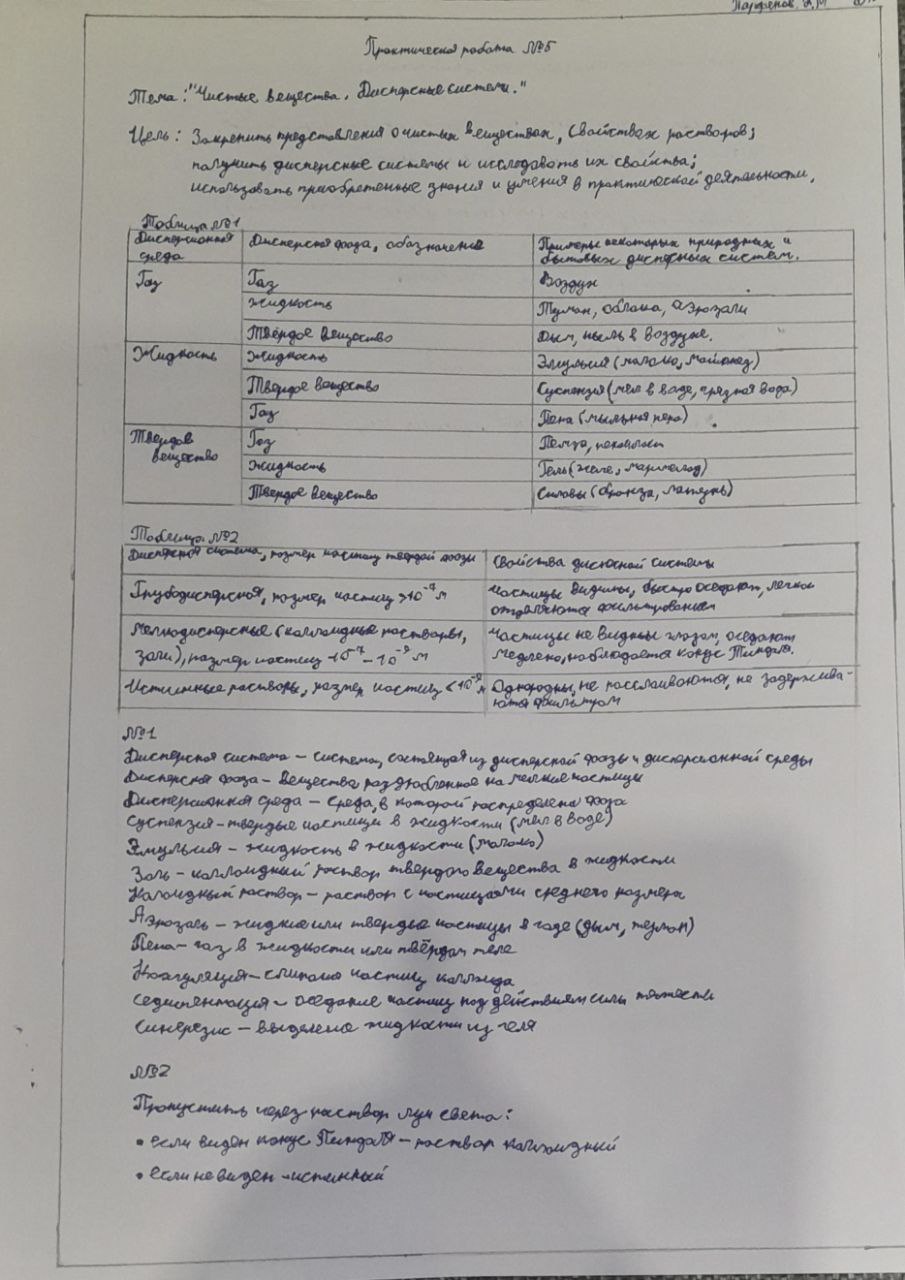 Парфенов. Д.М
Практическая работа №5
Тема: "Чистые вещества. Дисперсные системы."
Цель: Закрепить представления о чистых веществах, свойствах растворов;
получить дисперсные системы и исследовать их свойства;
использовать приобретенные знания и умения в практической деятельности.
Таблица №1
Дисперсионная среда | Дисперсная фаза, обозначение | Примеры некоторых природных и бытовых дисперсных систем.
Газ | Газ | Воздух
Жидкость | Туман, облака, аэрозали
Твёрдое вещество | Дым, пыль в воздухе.
Жидкость | Жидкость | Эмульсия (молоко, майонез)
Твердое вещество | Суспензия (мел в воде, грязная вода)
Газ | Пена (мыльная пена)
Твердое вещество | Газ | Пемза, пенопласт
Жидкость | Гель (желе, мармелад)
Твердое вещество | Сплавы (бронза, латунь)
Таблица №2
Дисперсная система, размер частиц твердой фазы | Свойства дисперсной системы
Грубодисперсная, размер частиц >10⁻⁷ м | Частицы видимы, быстро оседают, легко отделяются фильтрованием
Мелкодисперсные (коллоидные растворы, золи), размер частиц 10⁻⁷ – 10⁻⁹ м | Частицы не видны глазам, оседают медлено, наблюдается конус Тиндаля.
Истинные растворы, размер частиц < 10⁻⁹ м | Однородны, не расслаиваются, не задерживаются фильтром
№1
Дисперсная система – система, состоящая из дисперсной фазы и дисперсионной среды
Дисперсная фаза – вещество раздробленное на мелкие частицы
Дисперсионная среда – среда, в которой распределена фаза
Суспензия – твердые частицы в жидкости (мел в воде)
Эмульсия – жидкость в жидкости (молоко)
Золь – каллоидный раствор твердого вещества в жидкости
Калоидный раствор – раствор с частицами среднего размера
Аэрозоль – жидкие или твердые частицы в газе (дым, туман)
Пена – газ в жидкости или твёрдом теле
Коагуляция – слипание частиц каллоида
Седиментация – оседание частиц под действием силы тяжести
Синерезис – выделение жидкости из геля
№2
Пропустить через раствор луч света:
• если виден конус Тиндаля – раствор каллоидный
• если не виден – истинный